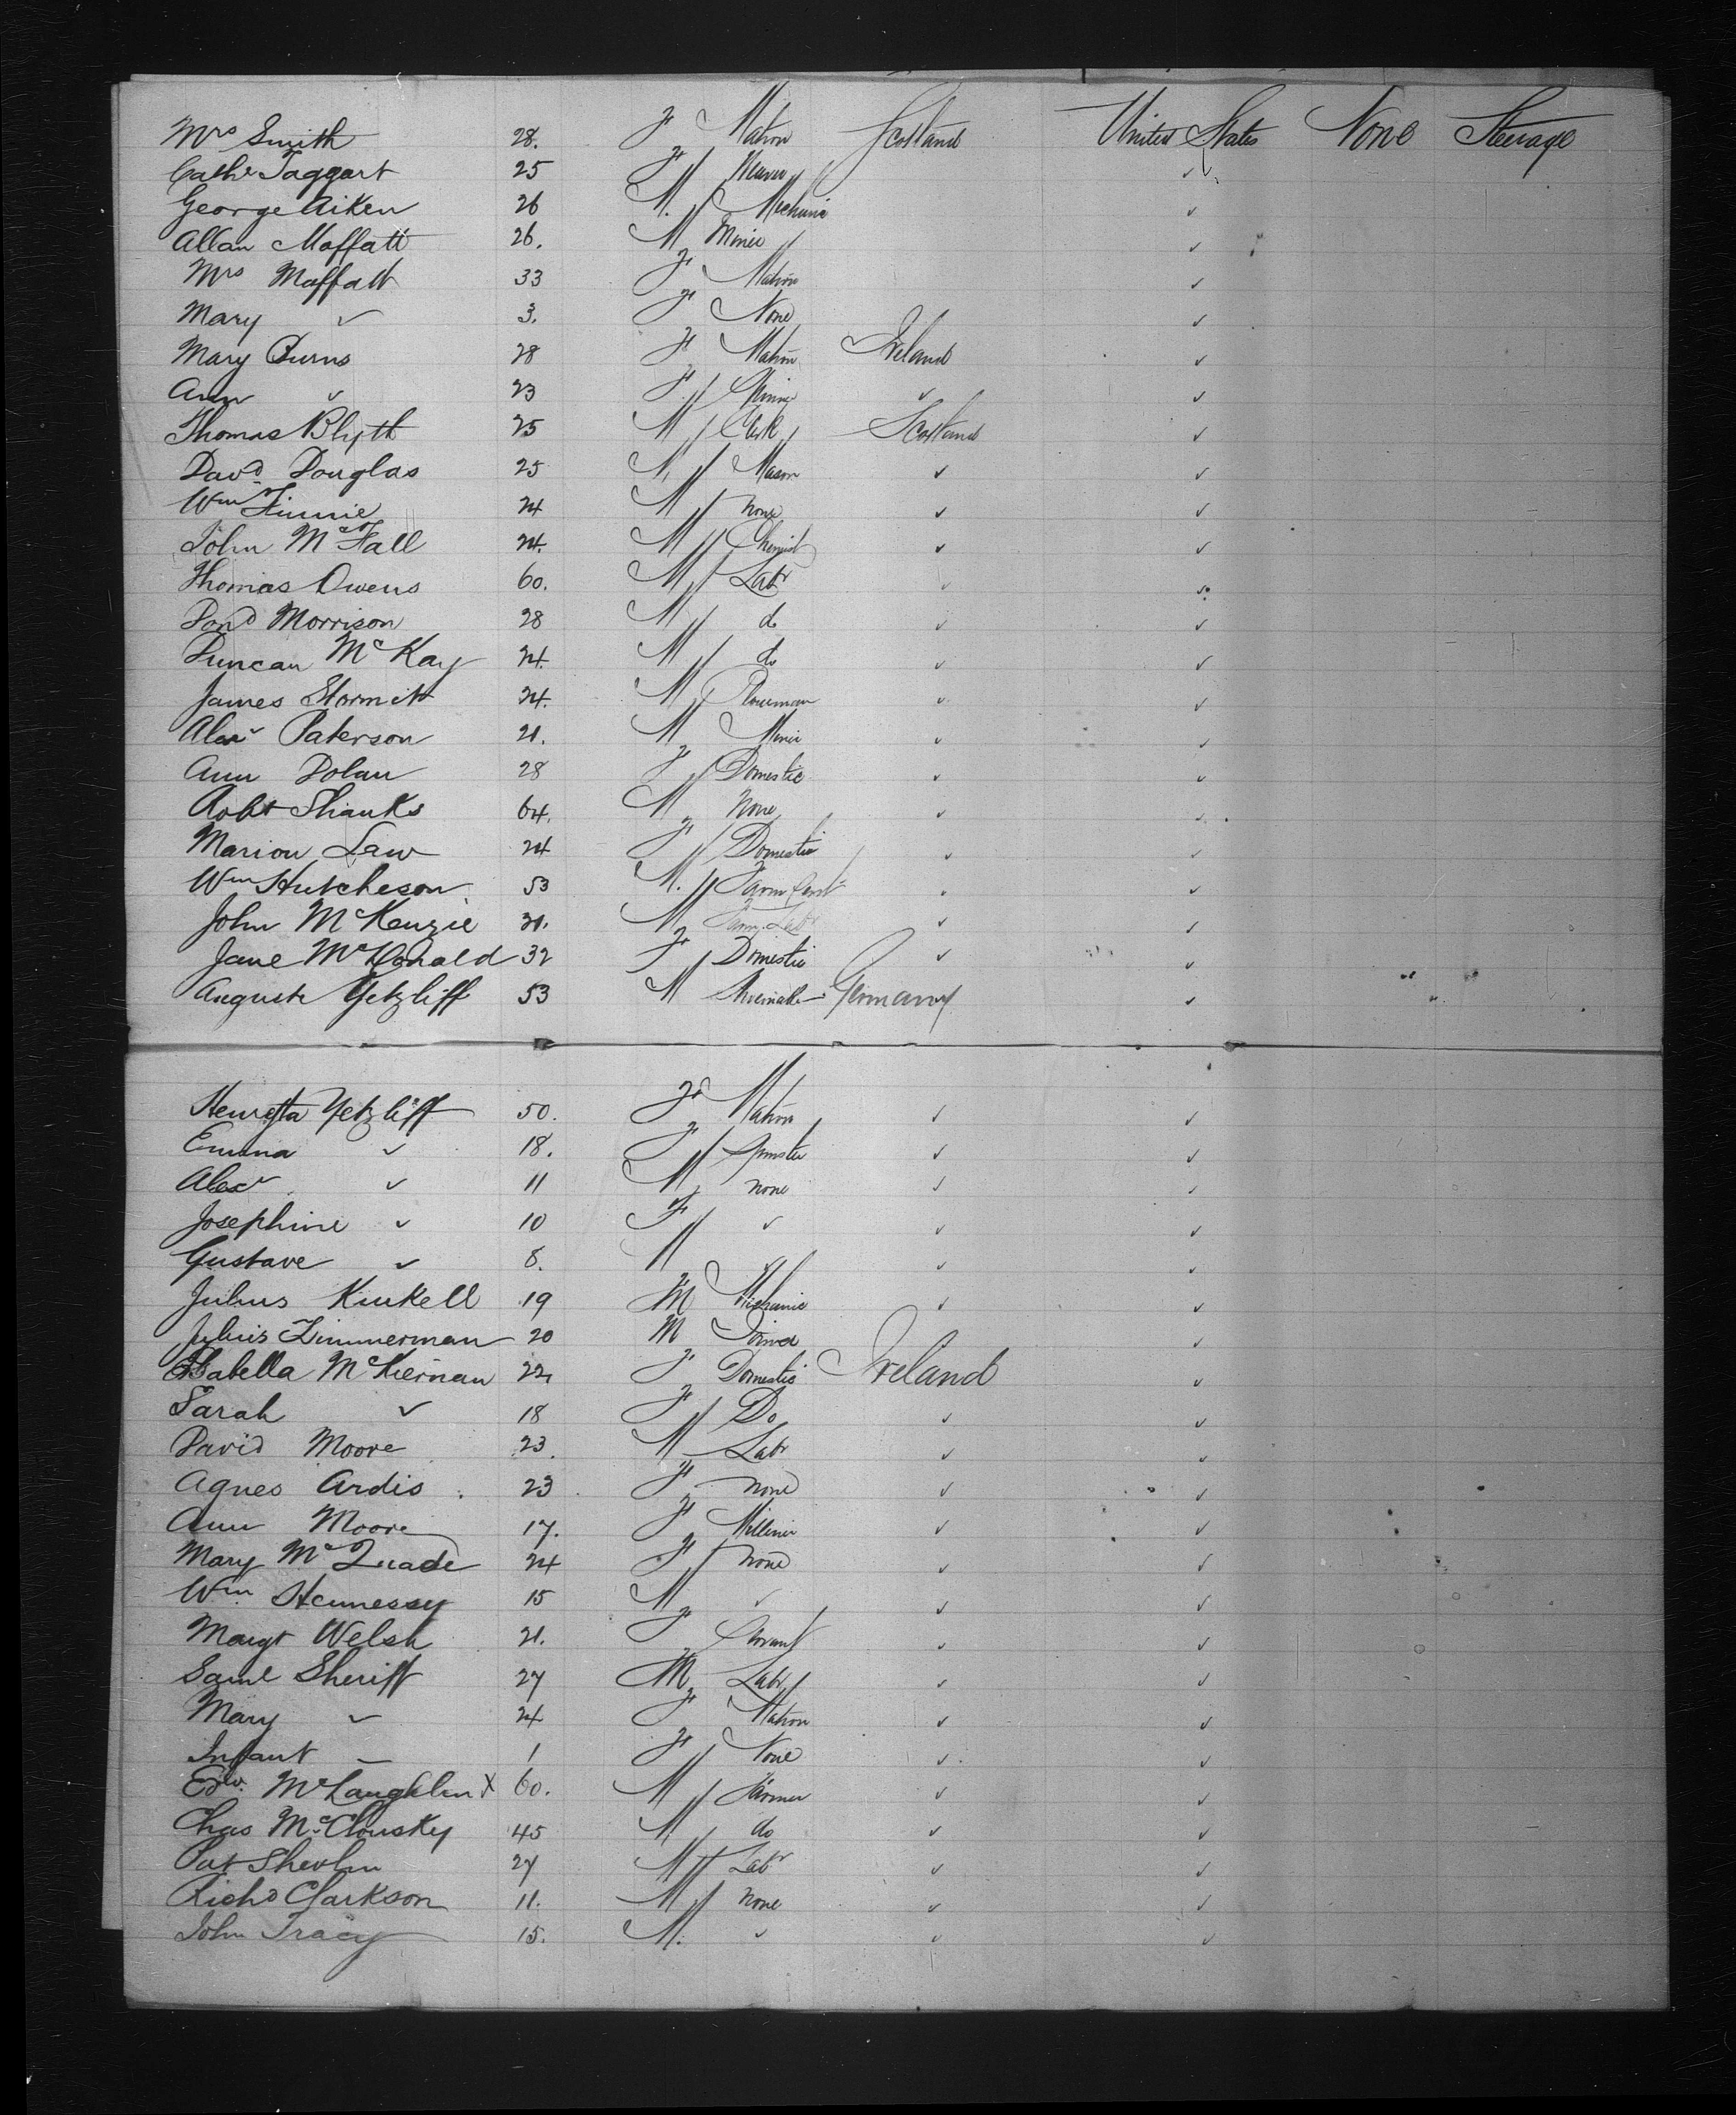 Mrs Smith 28. F Matron Scotland United States None Steerage
Cathe Taggart 25 F Weaver ✓
George Aiken 26 M. Mechanic ✓
Allan Moffatt 26. M Miner ✓
Mrs Moffatt 33 F Matron ✓
Mary ✓ 3. F None ✓
Mary Burns 28 F Matron Ireland ✓
Ann ✓ 23 F. ✓ ✓
Thomas Blyth 25 M Clerk Scotland ✓
Davd Douglas 25 M Mason ✓ ✓
Wm Finnie 24 M none ✓ ✓
John McFall 24. M Chemist ✓ ✓
Thomas Owens 60. M Labr ✓ ✓
Dond Morrison 28 M do ✓ ✓
Duncan McKay 24. M do ✓ ✓
James Stormitt 24. M ✓ ✓
Alexr Paterson 21. M Miner ✓ ✓
Ann Dolan 28 F Domestic ✓ ✓
Robt Shanks 64. M None ✓ ✓
Marion Law 24 F Domestic ✓ ✓
Wm Hutcheson 53 M. Farm Servt ✓ ✓
John McKenzie 31. M Farm Labr ✓ ✓
Jane McDonald 32 F Domestic ✓ ✓
Auguste Yetzliff 53 M Shoemaker Germany ✓
Henrietta Yetzliff 50. F Matron ✓ ✓
Emma ✓ 18. F Spinster ✓ ✓
Alexr ✓ 11 M none ✓ ✓
Josephine ✓ 10 F ✓ ✓ ✓
Gustave ✓ 8. M ✓ ✓
Julius Kinkell 19 M Mechanic ✓ ✓
Julius Zimmerman 20 M Joiner ✓
Isabella McKiernan 22 F Domestic Ireland ✓
Sarah ✓ 18 F Do ✓ ✓
David Moore 23. M Labr ✓ ✓
Agnes Ardis 23 F none ✓ ✓
Ann Moore 17. F Milliner ✓ ✓
Mary McQuade 24 F none ✓ ✓
Wm Hennessy 15 M ✓ ✓ ✓
Margt Welsh 21. F Servant ✓ ✓
Saml Sheriff 27 M Labr ✓ ✓
Mary ✓ 24 F Matron ✓ ✓
Infant — 1 F None ✓ ✓
Edw. McLaughlin X 60. M Farmer ✓ ✓
Chas McClousky 45 M do ✓ ✓
Pat Shevlin 27 M Labr ✓ ✓
Richd Clarkson 11. M none ✓ ✓
John Tracy 15. M. ✓ ✓ ✓